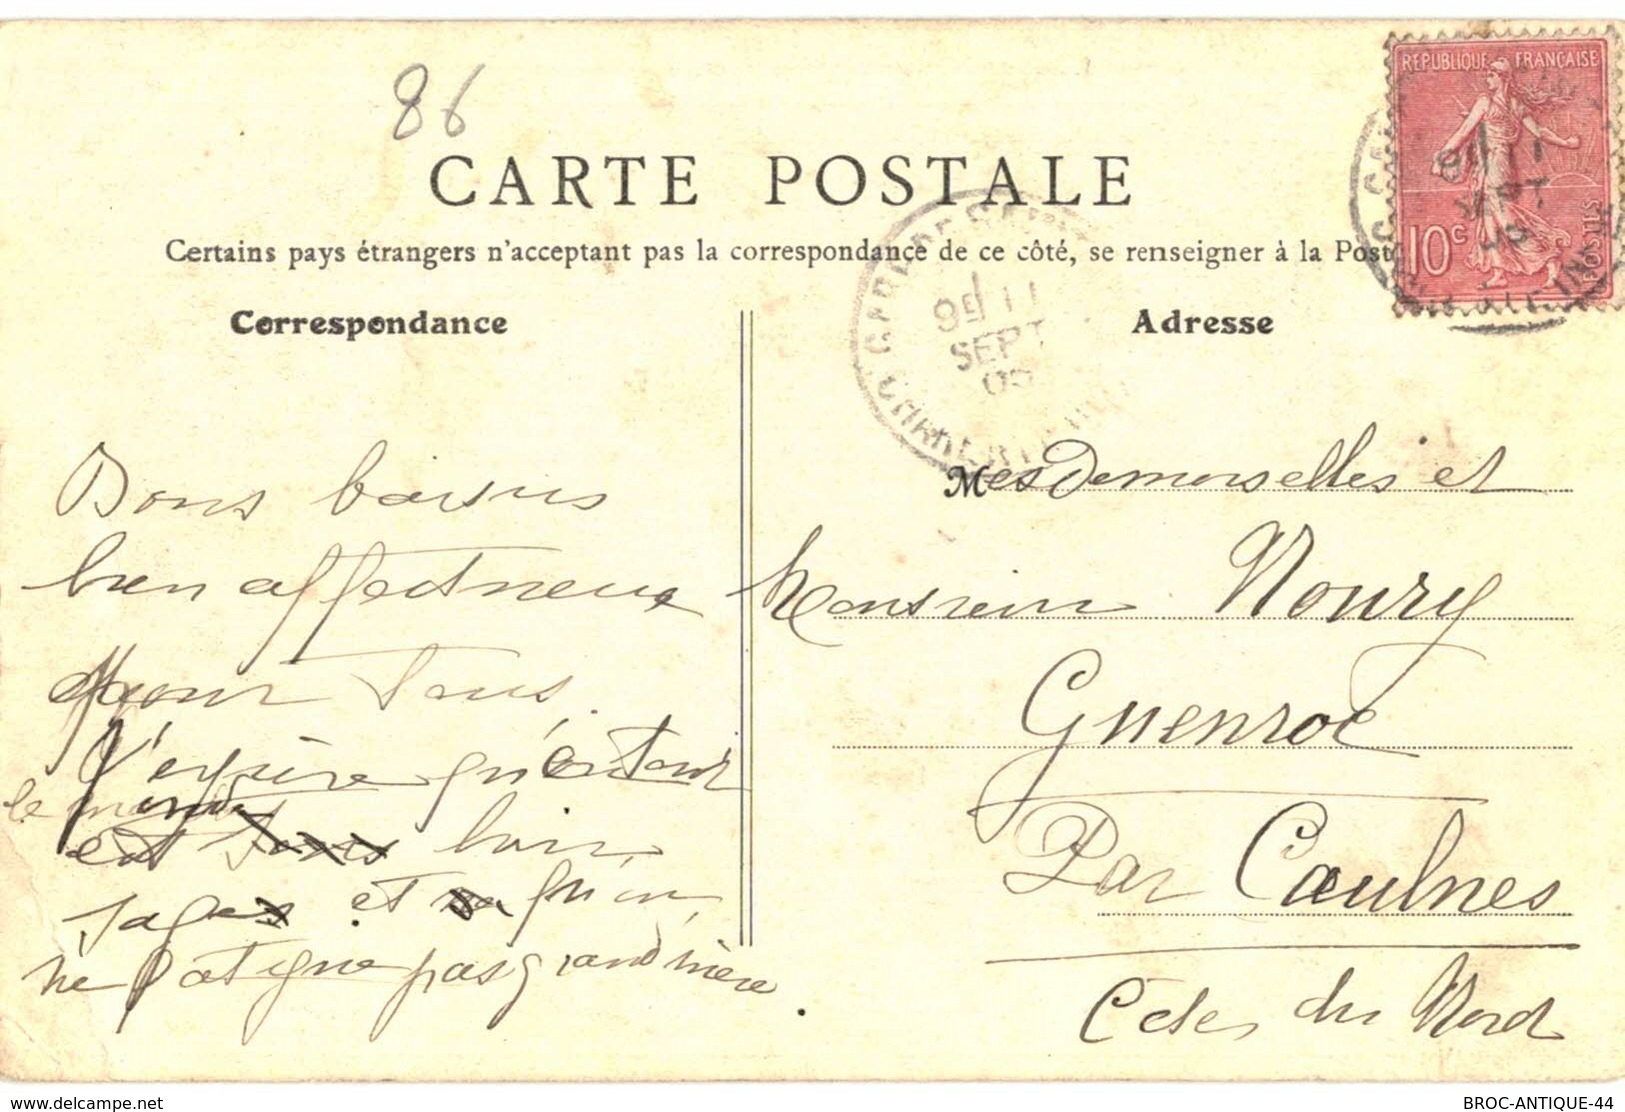 86
RÉPUBLIQUE FRANÇAISE
10c
POSTES
CARTE POSTALE
Certains pays étrangers n'acceptant pas la correspondance de ce côté, se renseigner à la Poste
Correspondance
Adresse
11
SEPT
05
Bons baisers
bien affectueux
pour tous.
J'espère que tout
le monde
est bien
sage et qu'on
ne fatigue pas grand mère.
Mesdemoiselles et
Monsieur Noury
Guenroc
Par Caulnes
Côtes du Nord
www.delcampe.net
BROC-ANTIQUE-44